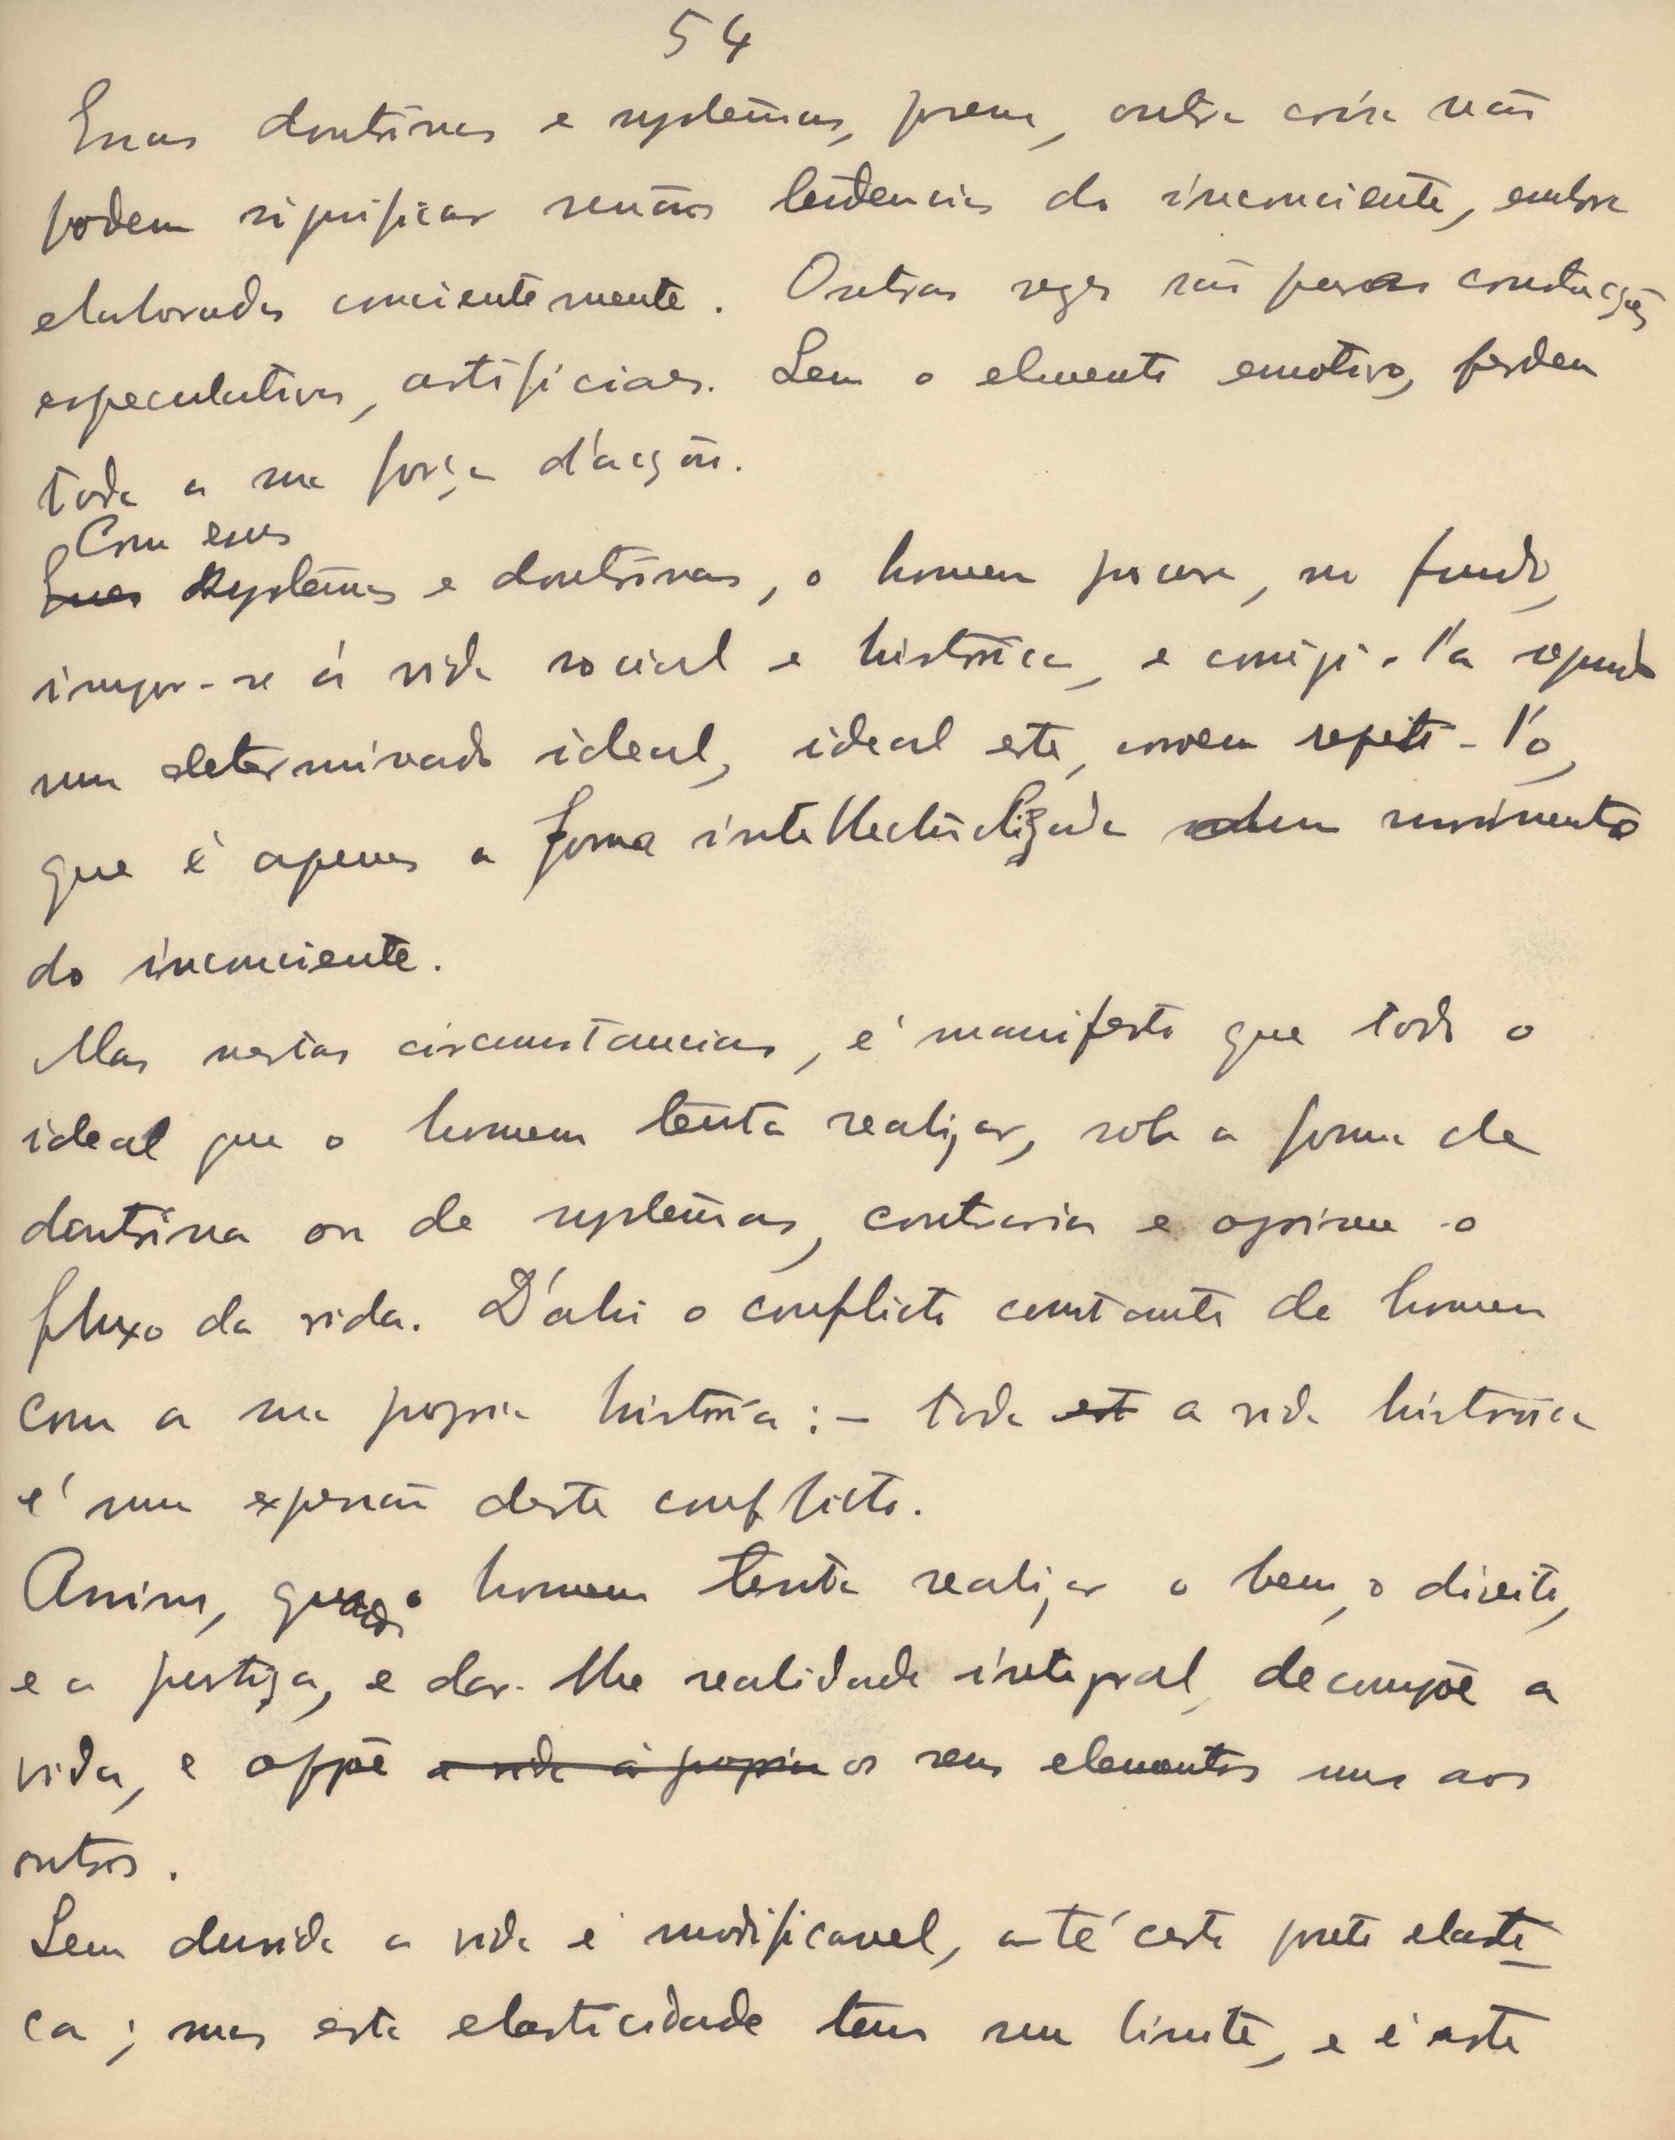 54
Essas doutrinas e systemas, porem, outra coisa não
podem significar senão tendencias do inconciente, embora
elaboradas concientemente. Outras vezes são puras construcções
especulativas, artificiaes. Sem o elemento emotivo, perdem
toda a sua força d'acção.
Com esses
Esses systemas e doutrinas, o homem procura, no fundo,
impor-se á vida social e historica, e corrigi-l'a segundo
um determinado ideal, ideal este, convem repeti-l'o,
que é apenas a forma intellectualizada dum movimento
do inconciente.
Mas nestas circumstancias, é manifesto que todo o
ideal que o homem tenta realizar, sob a forma de
doutrina ou de systemas, contraria e oprime o
fluxo da vida. D'ahi o conflicto constante do homem
com a sua propria historia: – toda est a vida historica
é uma expressão deste conflicto.
Assim, quando o homem tenta realizar o bem, o direito,
e a justiça, e dar-lhe realidade integral, decompõe a
vida, e oppõe a vida á propria os seus elementos uns aos
outros.
Sem duvida a vida é modificavel, até certo ponto elasti
ca; mas esta elasticidade tem um limite, e é este